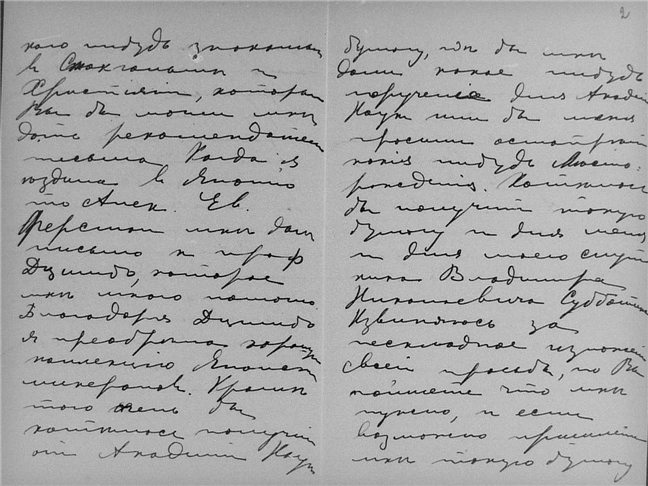 2
кого нибудь знакомых
в Стокгольмы и
Христіяніи, которым
Вы бы могли мнѣ
дать рекомендател
письма. Когда я
ѣздила в Японію
то Алек. Ев.
Ферсман мнѣ далъ
письмо к проф
Дзимбо, которое
мнѣ много помогло.
Благодаря Дзимбо
я пріобрѣла хорош
коллекцію Японск
минералов. Кромѣ
того очень бы
хотѣлось получить
от Академіи Наук
бумагу, гдѣ бы мнѣ
дали какое нибудь
порученіе для Академ
Наук или бы меня
просили осмотрѣть
какія нибудь Место-
рожденія. Хотѣлось
бы получить такую
бумагу и для меня
и для моего спут
ника Владимира
Николаевича Субботина
Извиняюсь за
нескладное изложеніе
своей просьбы, но Вы
поймете что мнѣ
нужно, и если
возможно пришлите
мнѣ такую бумагу